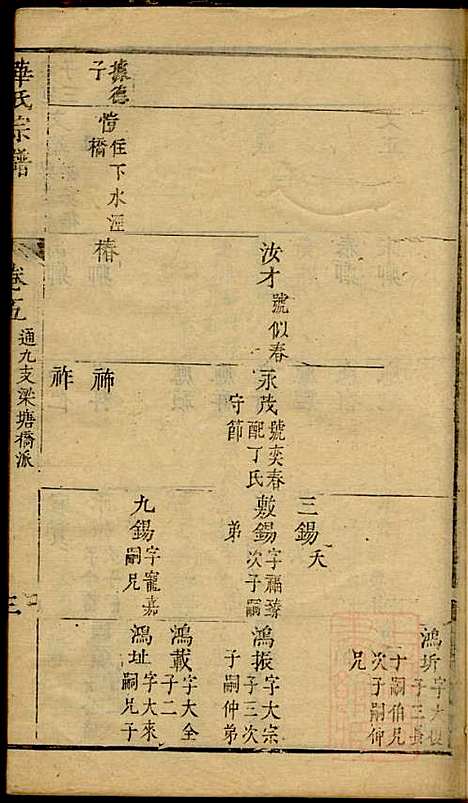 鴻圻 字大俊
子三長
十嗣伯兄
次子嗣仲
兄
三錫 夭
汝才 號似春
永茂 號奕春
配丁氏
守節
敷錫 字福臻
次子嗣
弟
鴻振 字大宗
子三次
子嗣仲弟
鴻載 字大全
子二
九錫 字寵嘉
嗣兄
鴻址 字大來
嗣兄子
據德
子
愷 住下水涇
橋
椿
祢
祚
華氏宗譜
卷五
通九支梁塘橋派
三